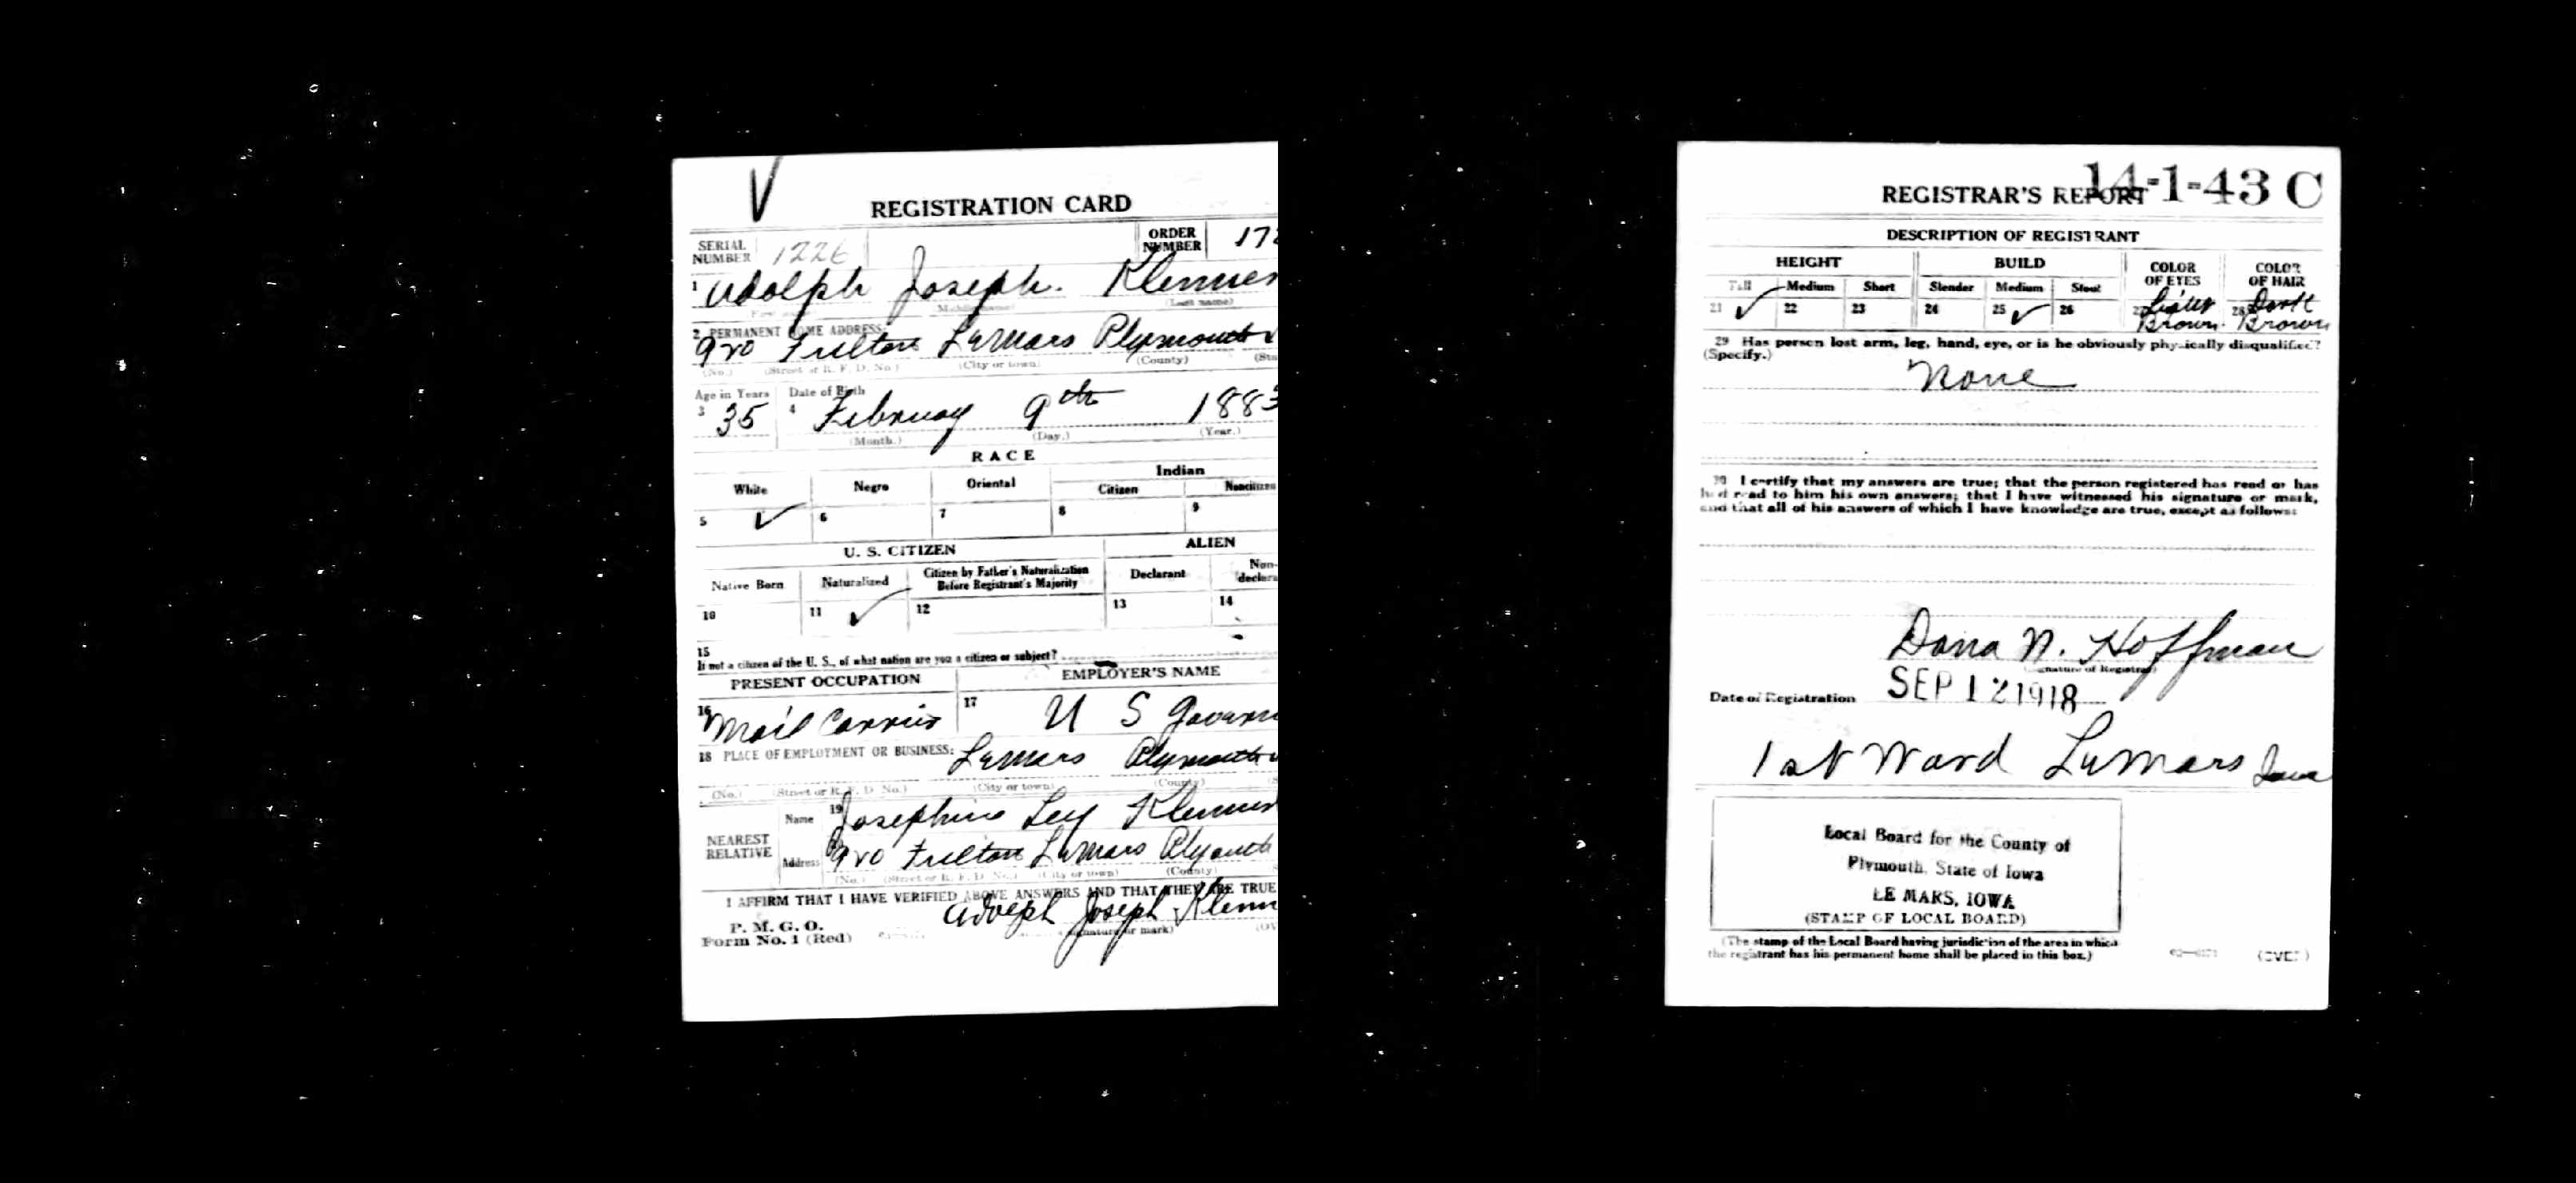 REGISTRATION CARD
SERIAL NUMBER 1226 ORDER NUMBER 17
1 Adolph Joseph. Klemmer
(Middle name) (Last name)
2 PERMANENT HOME ADDRESS:
920 Fulton LeMars Plymouth
(No.) (Street or R. F. D. No.) (City or town) (County) (Sta
Age in Years Date of Birth
3 35 4 February 9th 1883
(Month.) (Day.) (Year.)
RACE
White Negro Oriental Indian
Citizen Noncitizen
5 ✓ 6 7 8 9
U. S. CITIZEN ALIEN
Native Born Naturalized Citizen by Father's Naturalization Before Registrant's Majority Declarant Non-declara
10 11 ✓ 12 13 14
15
If not a citizen of the U. S., of what nation are you a citizen or subject?
PRESENT OCCUPATION EMPLOYER'S NAME
16 Mail Carrier 17 U S Governm
18 PLACE OF EMPLOYMENT OR BUSINESS: LeMars Plymouth
(No.) (Street or R. F. D. No.) (City or town) (County)
NEAREST RELATIVE Name 19 Josephine Ley Klemmer
Address 920 Fulton LeMars Plymouth
(No.) (Street or R. F. D. No.) (City or town) (County)
I AFFIRM THAT I HAVE VERIFIED ABOVE ANSWERS AND THAT THEY ARE TRUE
P. M. G. O.
Form No. 1 (Red) Adolph Joseph Klemm
(Signature or mark) (OV
REGISTRAR'S REPORT 14-1-43 C
DESCRIPTION OF REGISTRANT
HEIGHT BUILD COLOR OF EYES COLOR OF HAIR
Tall Medium Short Slender Medium Stout
21 ✓ 22 23 24 25 ✓ 26 27 Light Brown 28 Dark Brown
29 Has person lost arm, leg, hand, eye, or is he obviously physically disqualified?
(Specify.)
None
30 I certify that my answers are true; that the person registered has read or has
had read to him his own answers; that I have witnessed his signature or mark,
and that all of his answers of which I have knowledge are true, except as follows:
Dana N. Hoffman
(Signature of Registrar)
Date of Registration SEP 12 1918
1st Ward LeMars Iowa
Local Board for the County of
Plymouth, State of Iowa
LE MARS, IOWA
(STAMP OF LOCAL BOARD)
(The stamp of the Local Board having jurisdiction of the area in which
the registrant has his permanent home shall be placed in this box.)
(OVER)